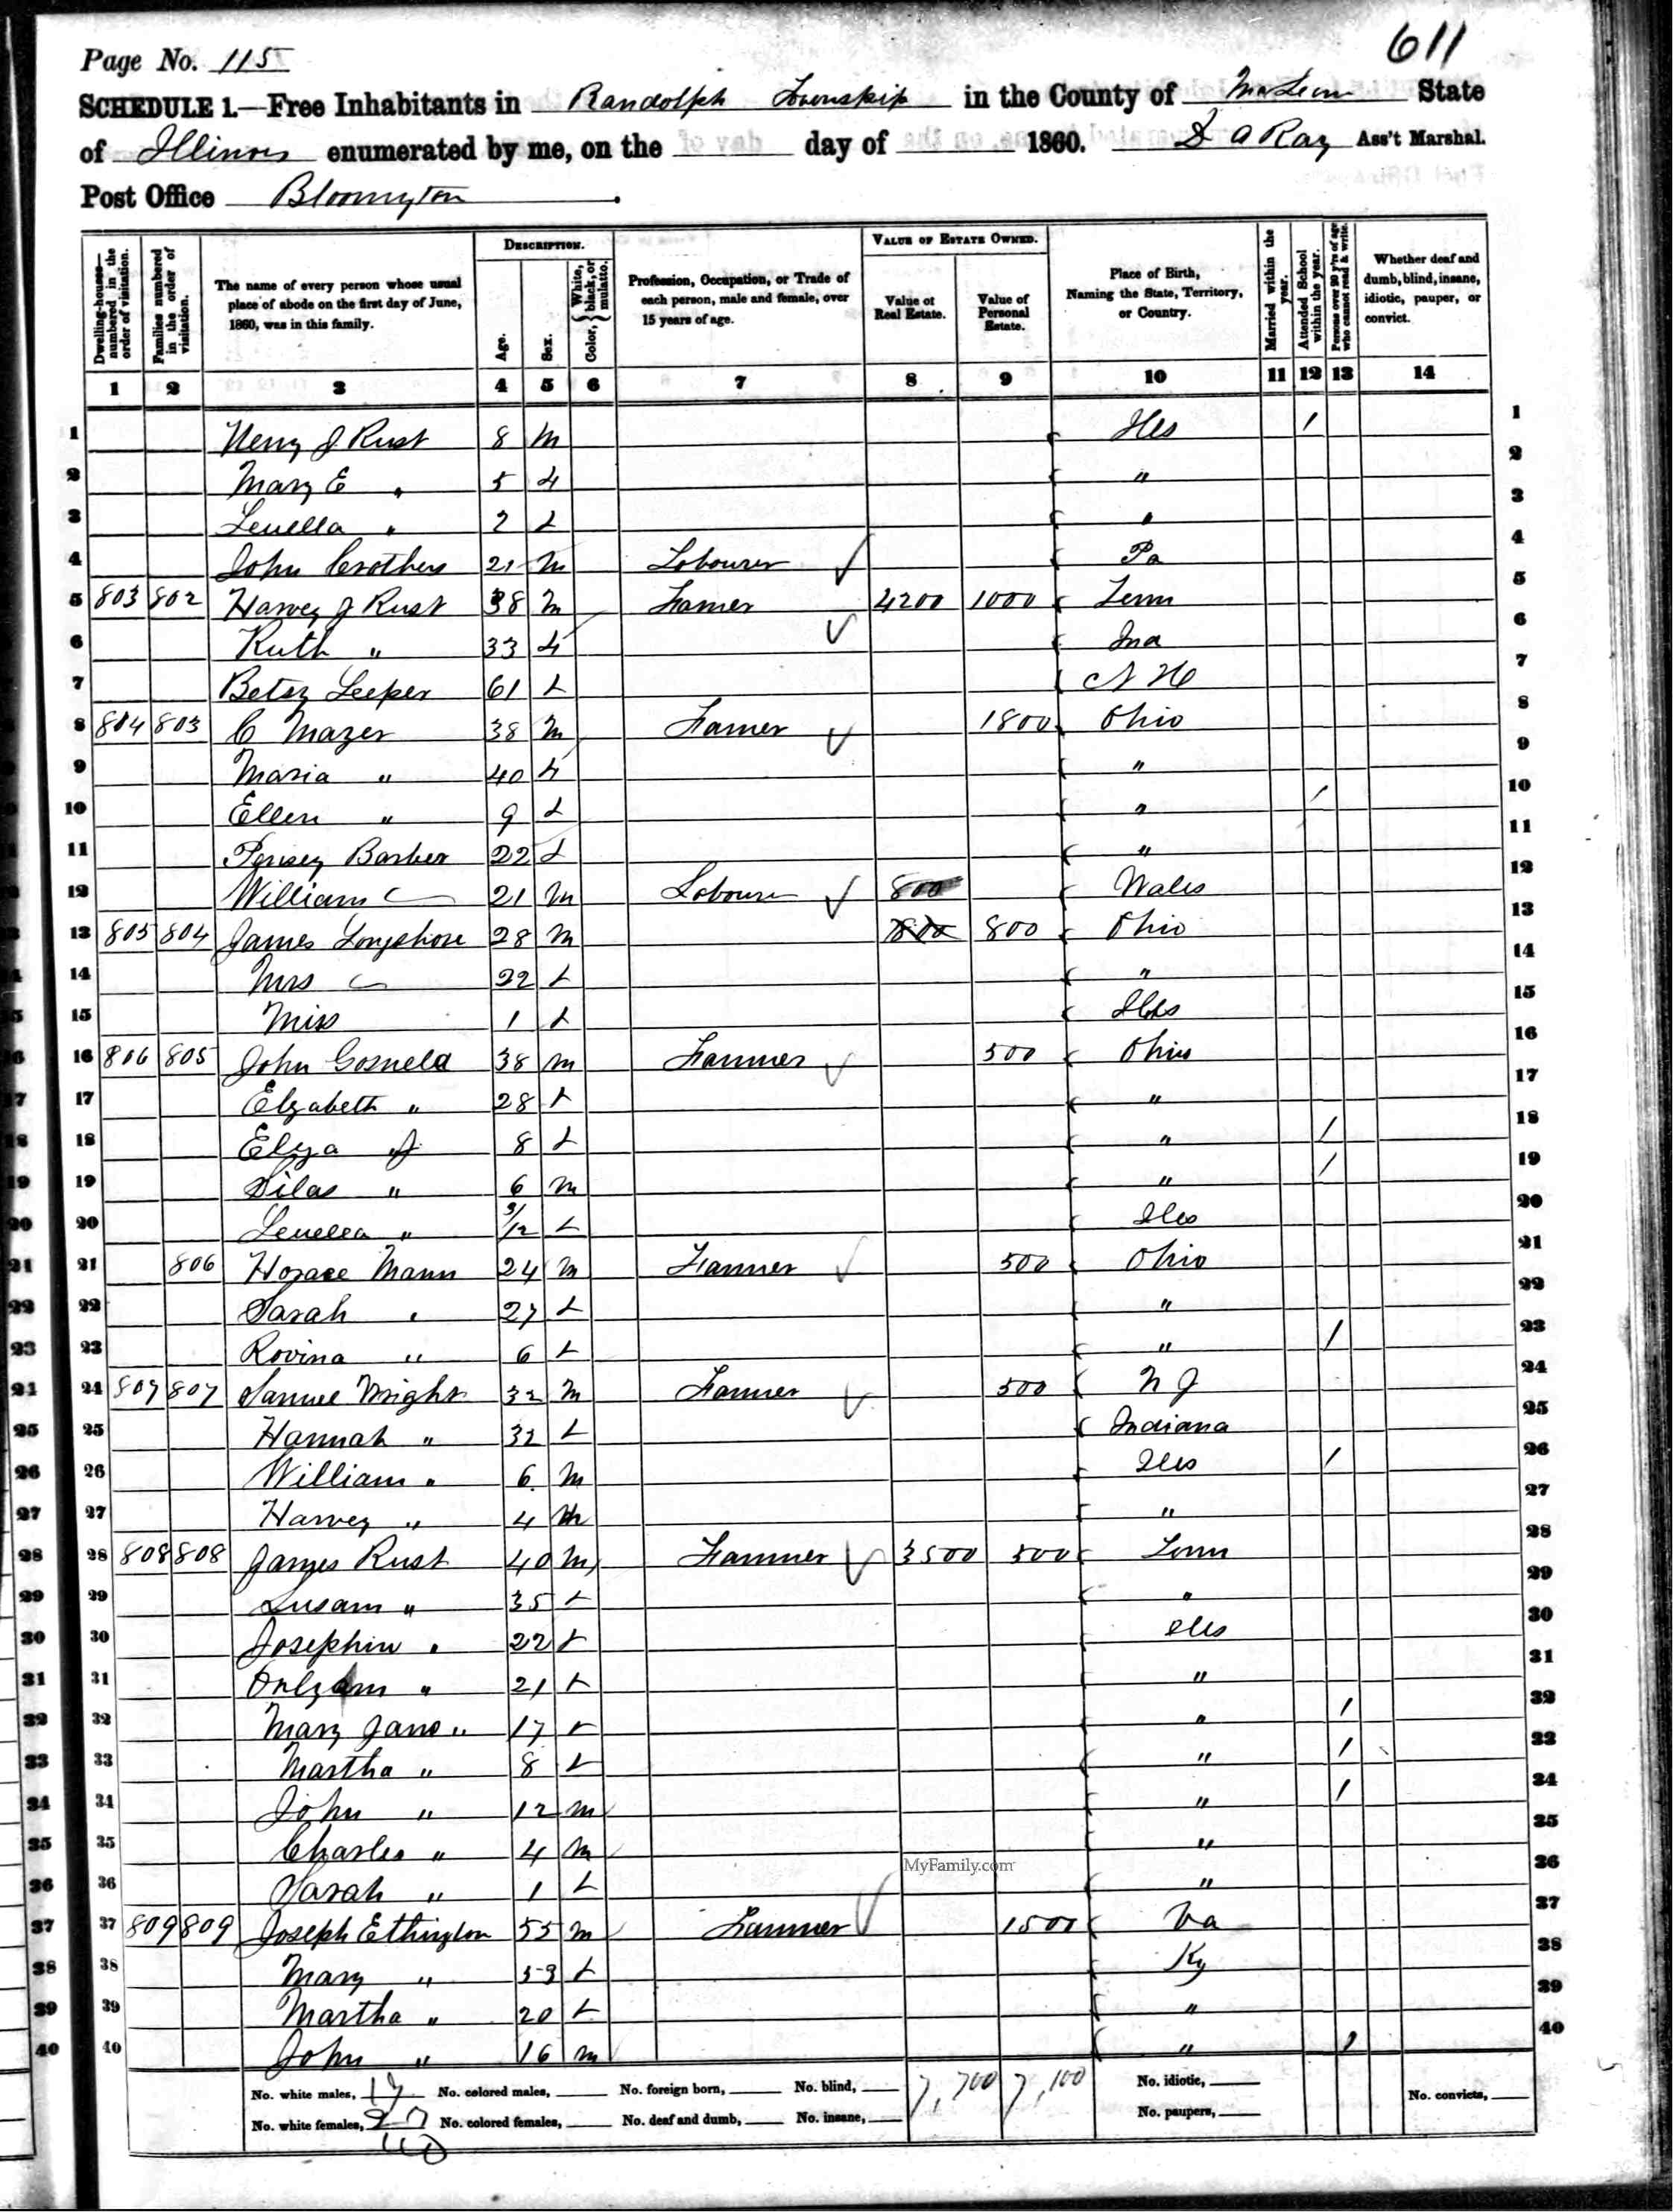 611
Page No. 115
SCHEDULE 1.—Free Inhabitants in Randolph Township in the County of McLean State
of Illinois enumerated by me, on the ___ day of ___ 1860. S A Ray Ass't Marshal.
Post Office Bloomington.
Dwelling-houses—numbered in the order of visitation. Families numbered in the order of visitation. The name of every person whose usual place of abode on the first day of June, 1860, was in this family. DESCRIPTION. Age. Sex. Color, White, black, or mulatto. Profession, Occupation, or Trade of each person, male and female, over 15 years of age. VALUE OF ESTATE OWNED. Value of Real Estate. Value of Personal Estate. Place of Birth, Naming the State, Territory, or Country. Married within the year. Attended School within the year. Persons over 20 y'rs of age who cannot read & write. Whether deaf and dumb, blind, insane, idiotic, pauper, or convict.
1 2 3 4 5 6 7 8 9 10 11 12 13 14
1 Henry J Rust 8 m Ills / 1
2 Mary E " 5 f " 2
3 Leuella " 2 f " 3
4 John Crothers 21 m Labourer Pa 4
5 803 802 Harvey J Rust 38 m Farmer 4200 1000 Tenn 5
6 Ruth " 33 f Ina 6
7 Betsy Leeper 61 f N H 7
8 804 803 C Mazer 38 m Farmer 1800 Ohio 8
9 Maria " 40 f " 9
10 Ellen " 9 f " / 10
11 Barber 22 f " 11
12 William 21 m Labourer 800 Wales 12
13 805 804 James Longshore 28 m 800 800 Ohio 13
14 Mrs 22 f " 14
15 Miss 1 f Ills 15
16 806 805 John Gosneld 38 m Farmer 500 Ohio 16
17 Elzabeth " 28 f " 17
18 Elza J 8 f " / 18
19 Silas " 6 m " / 19
20 Leuella " 3/12 f Ills 20
21 806 Horace Mann 24 m Farmer 500 Ohio 21
22 Sarah " 27 f " 22
23 Rovina " 6 f " / 23
24 807 807 Samuel Wright 32 m Farmer 500 N J 24
25 Hannah " 32 f Indiana 25
26 William " 6 m Ills / 26
27 Harvey " 4 m " 27
28 808 808 James Rust 40 m Farmer 3500 500 Tenn 28
29 Susam " 35 f " 29
30 Josephine " 22 f Ills 30
31 " 21 f " 31
32 Mary Jane " 17 f " / 32
33 Martha " 8 f " / 33
34 John " 12 m " / 34
35 Charles " 4 m " 35
36 Sarah " 1 f " 36
37 809 809 Joseph Ethington 55 m Farmer 1500 Va 37
38 Mary " 53 f Ky 38
39 Martha " 20 f " 39
40 John " 16 m " / 40
MyFamily.com
No. white males, 17 No. colored males, ___ No. foreign born, ___ No. blind, ___ 7,700 7,100 No. idiotic, ___
No. white females, 23 No. colored females, ___ No. deaf and dumb, ___ No. insane, ___ No. paupers, ___ No. convicts, ___
40